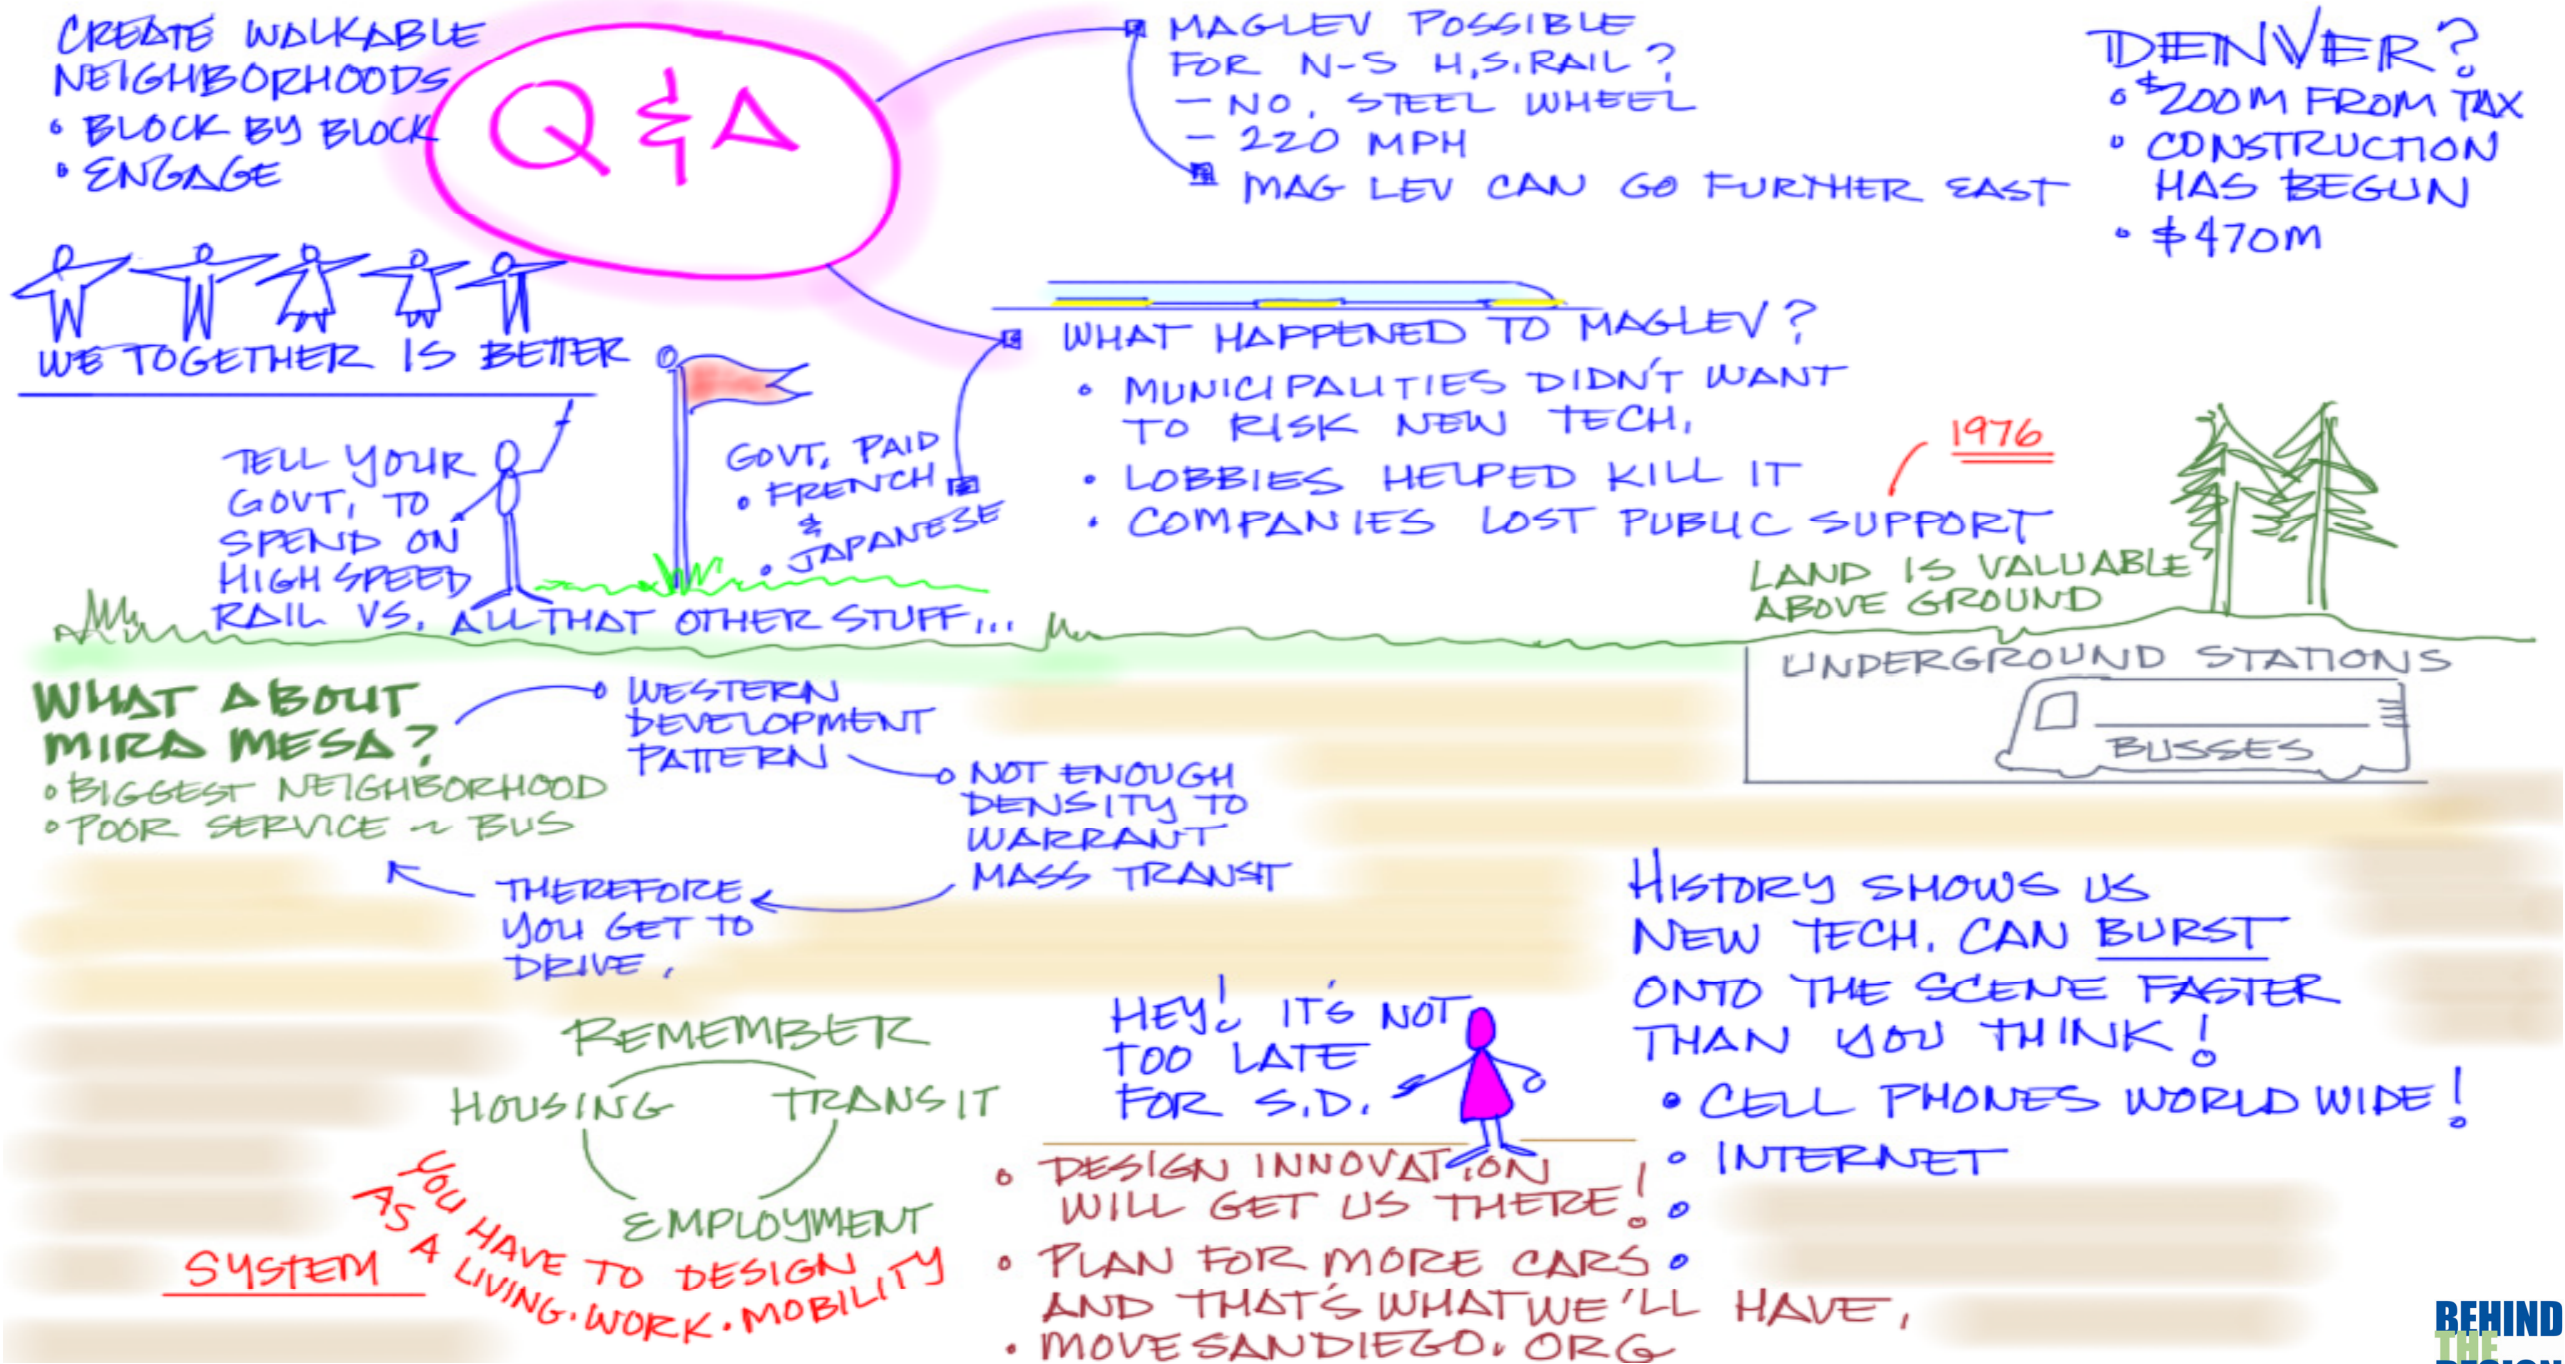 CREATE WALKABLE
NEIGHBORHOODS
• BLOCK BY BLOCK
• ENGAGE
Q & A
MAGLEV POSSIBLE
FOR N-S H.S. RAIL?
- NO, STEEL WHEEL
- 220 MPH
MAG LEV CAN GO FURTHER EAST
DENVER?
• $200M FROM TAX
• CONSTRUCTION
HAS BEGUN
• $470M
WE TOGETHER IS BETTER
TELL YOUR
GOVT. TO
SPEND ON
HIGH SPEED
RAIL VS. ALL THAT OTHER STUFF...
GOVT. PAID
• FRENCH
&
• JAPANESE
WHAT HAPPENED TO MAGLEV?
• MUNICIPALITIES DIDN'T WANT
TO RISK NEW TECH.
• LOBBIES HELPED KILL IT
• COMPANIES LOST PUBLIC SUPPORT
1976
LAND IS VALUABLE
ABOVE GROUND
UNDERGROUND STATIONS
BUSSES
WHAT ABOUT
MIRA MESA?
• BIGGEST NEIGHBORHOOD
• POOR SERVICE ~ BUS
WESTERN
DEVELOPMENT
PATTERN
NOT ENOUGH
DENSITY TO
WARRANT
MASS TRANSIT
THEREFORE
YOU GET TO
DRIVE.
REMEMBER
HOUSING
TRANSIT
EMPLOYMENT
YOU HAVE TO DESIGN
AS A LIVING. WORK. MOBILITY
SYSTEM
HEY! IT'S NOT
TOO LATE
FOR S.D.
• DESIGN INNOVATION
WILL GET US THERE!
• PLAN FOR MORE CARS
AND THAT'S WHAT WE'LL HAVE.
• MOVESANDIEGO.ORG
HISTORY SHOWS US
NEW TECH. CAN BURST
ONTO THE SCENE FASTER
THAN YOU THINK!
• CELL PHONES WORLD WIDE!
• INTERNET
•
•
BEHIND
THE